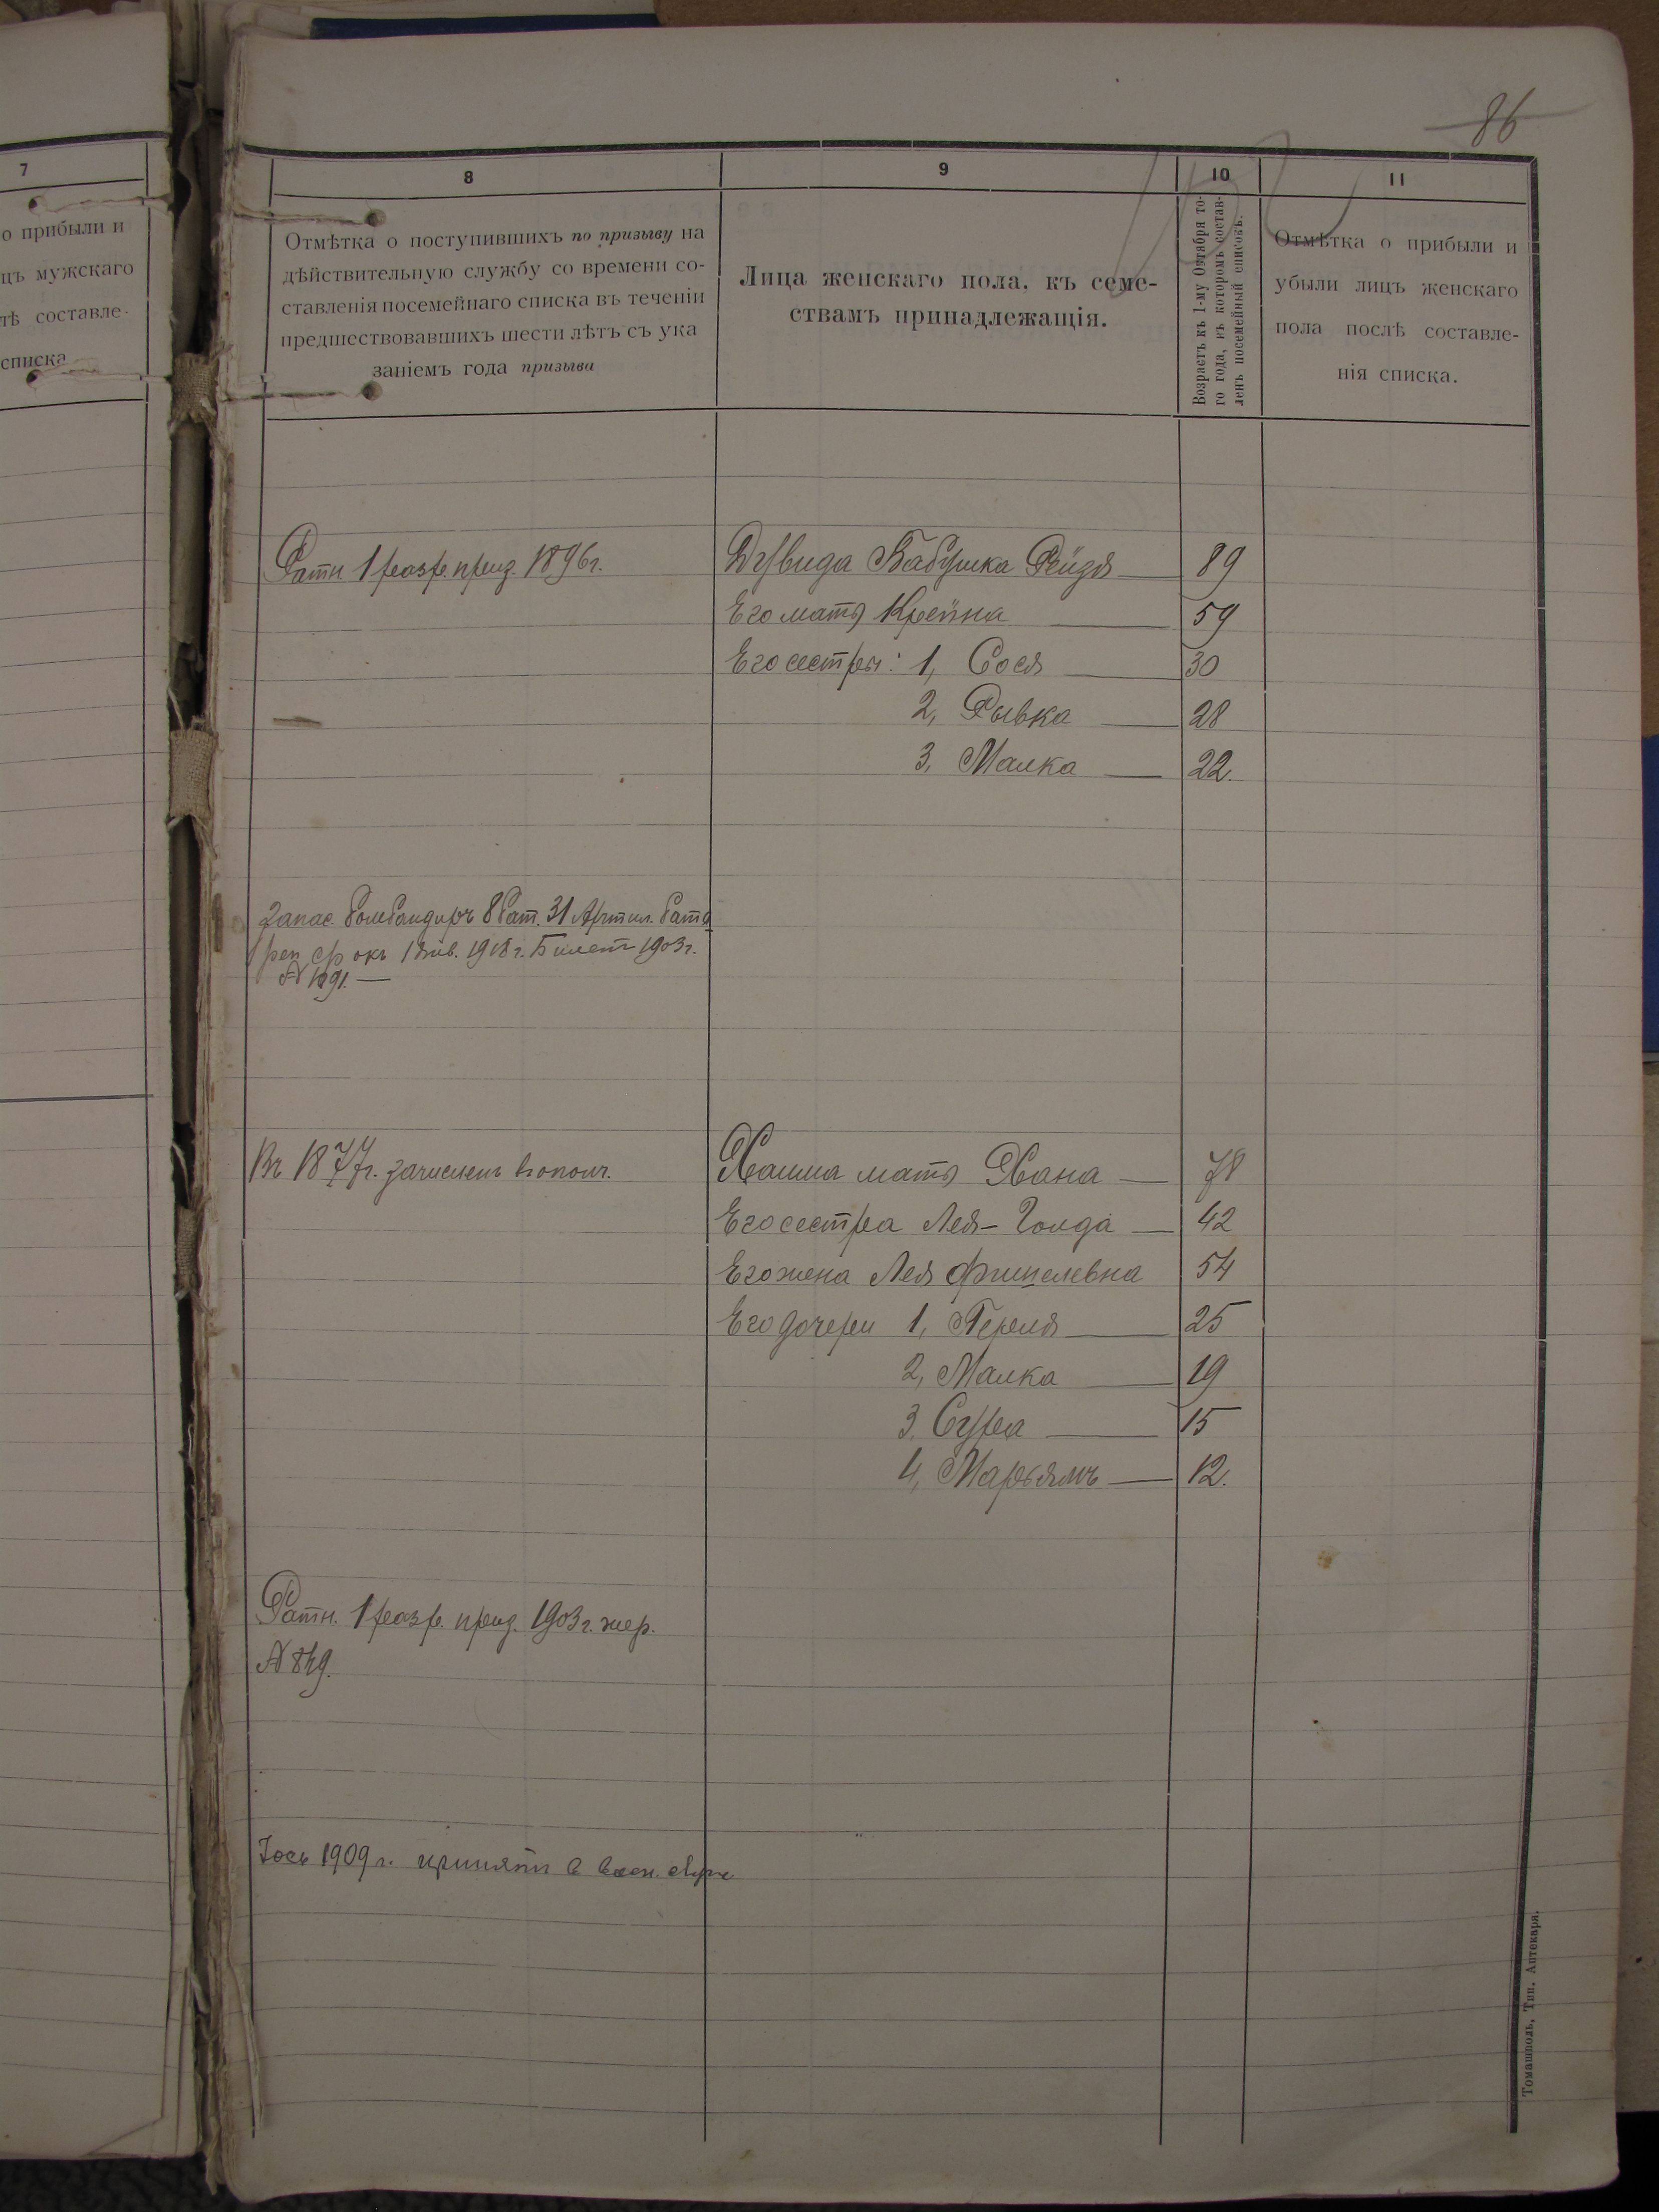 86
7
о прибыли и
цъ мужскаго
лѣ составле-
списка
8
9
10
11
Отмѣтка о поступившихъ по призыву на
дѣйствительную службу со времени со-
ставленія посемейнаго списка въ теченіи
предшествовавшихъ шести лѣтъ съ ука
заніемъ года призыва
Лица женскаго пола, къ семе-
ствамъ принадлежащія.
Возрастъ къ 1-му Октября то-
го года, въ которомъ состав-
ленъ посемейный списокъ.
Отмѣтка о прибыли и
убыли лицъ женскаго
пола послѣ составле-
нія списка.
Ратн. 1 разр. приз. 1896 г.
Дувида Бабушка Рейзя 89
Его мать Крейна 59
Его сестры: 1, Сося 30
2, Рывка 28
3, Малка 22.
Запас. Бомбандиръ 8 Бат. 31 Артил.
срокъ 1 Янв. 1918 г. Билетъ 1903 г.
Въ 1877 г. зачисленъ в ополч.
Хаима мать Хана 78
Его сестра Лея-Голда 42
Его жена Лея Фишелевна 54
Его дочери 1, Перля 25
2, Малка 19
3, Сура 15
4, Марьямъ 12.
Ратн. 1 разр. приз. 1903 г. жер.
№ 849.
Іось 1909 г. принятъ в воен. служ
Томашполь, Тип. Аптекаря.